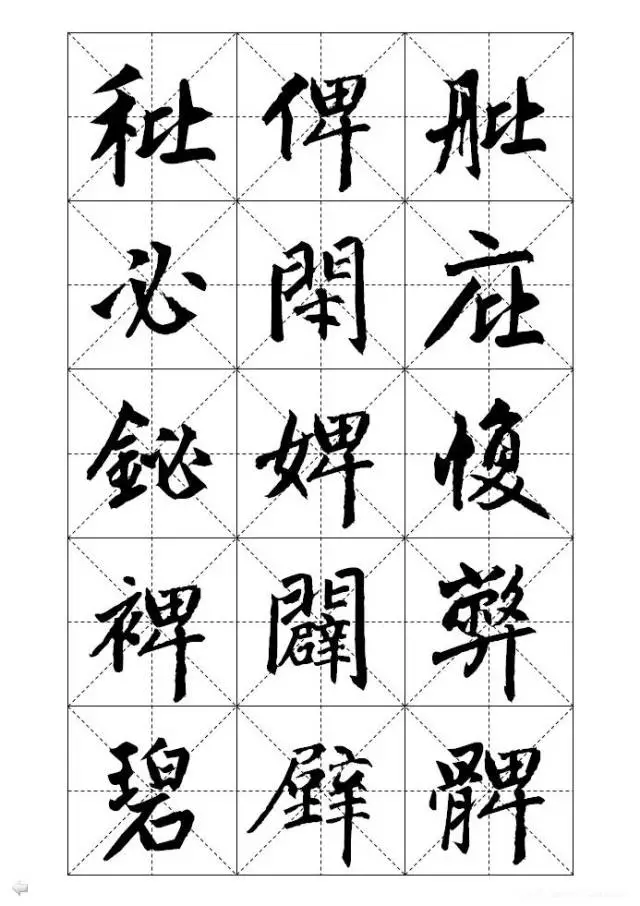 秕俾舭
必閉庇
鉍婢愎
裨闢弊
碧壁髀